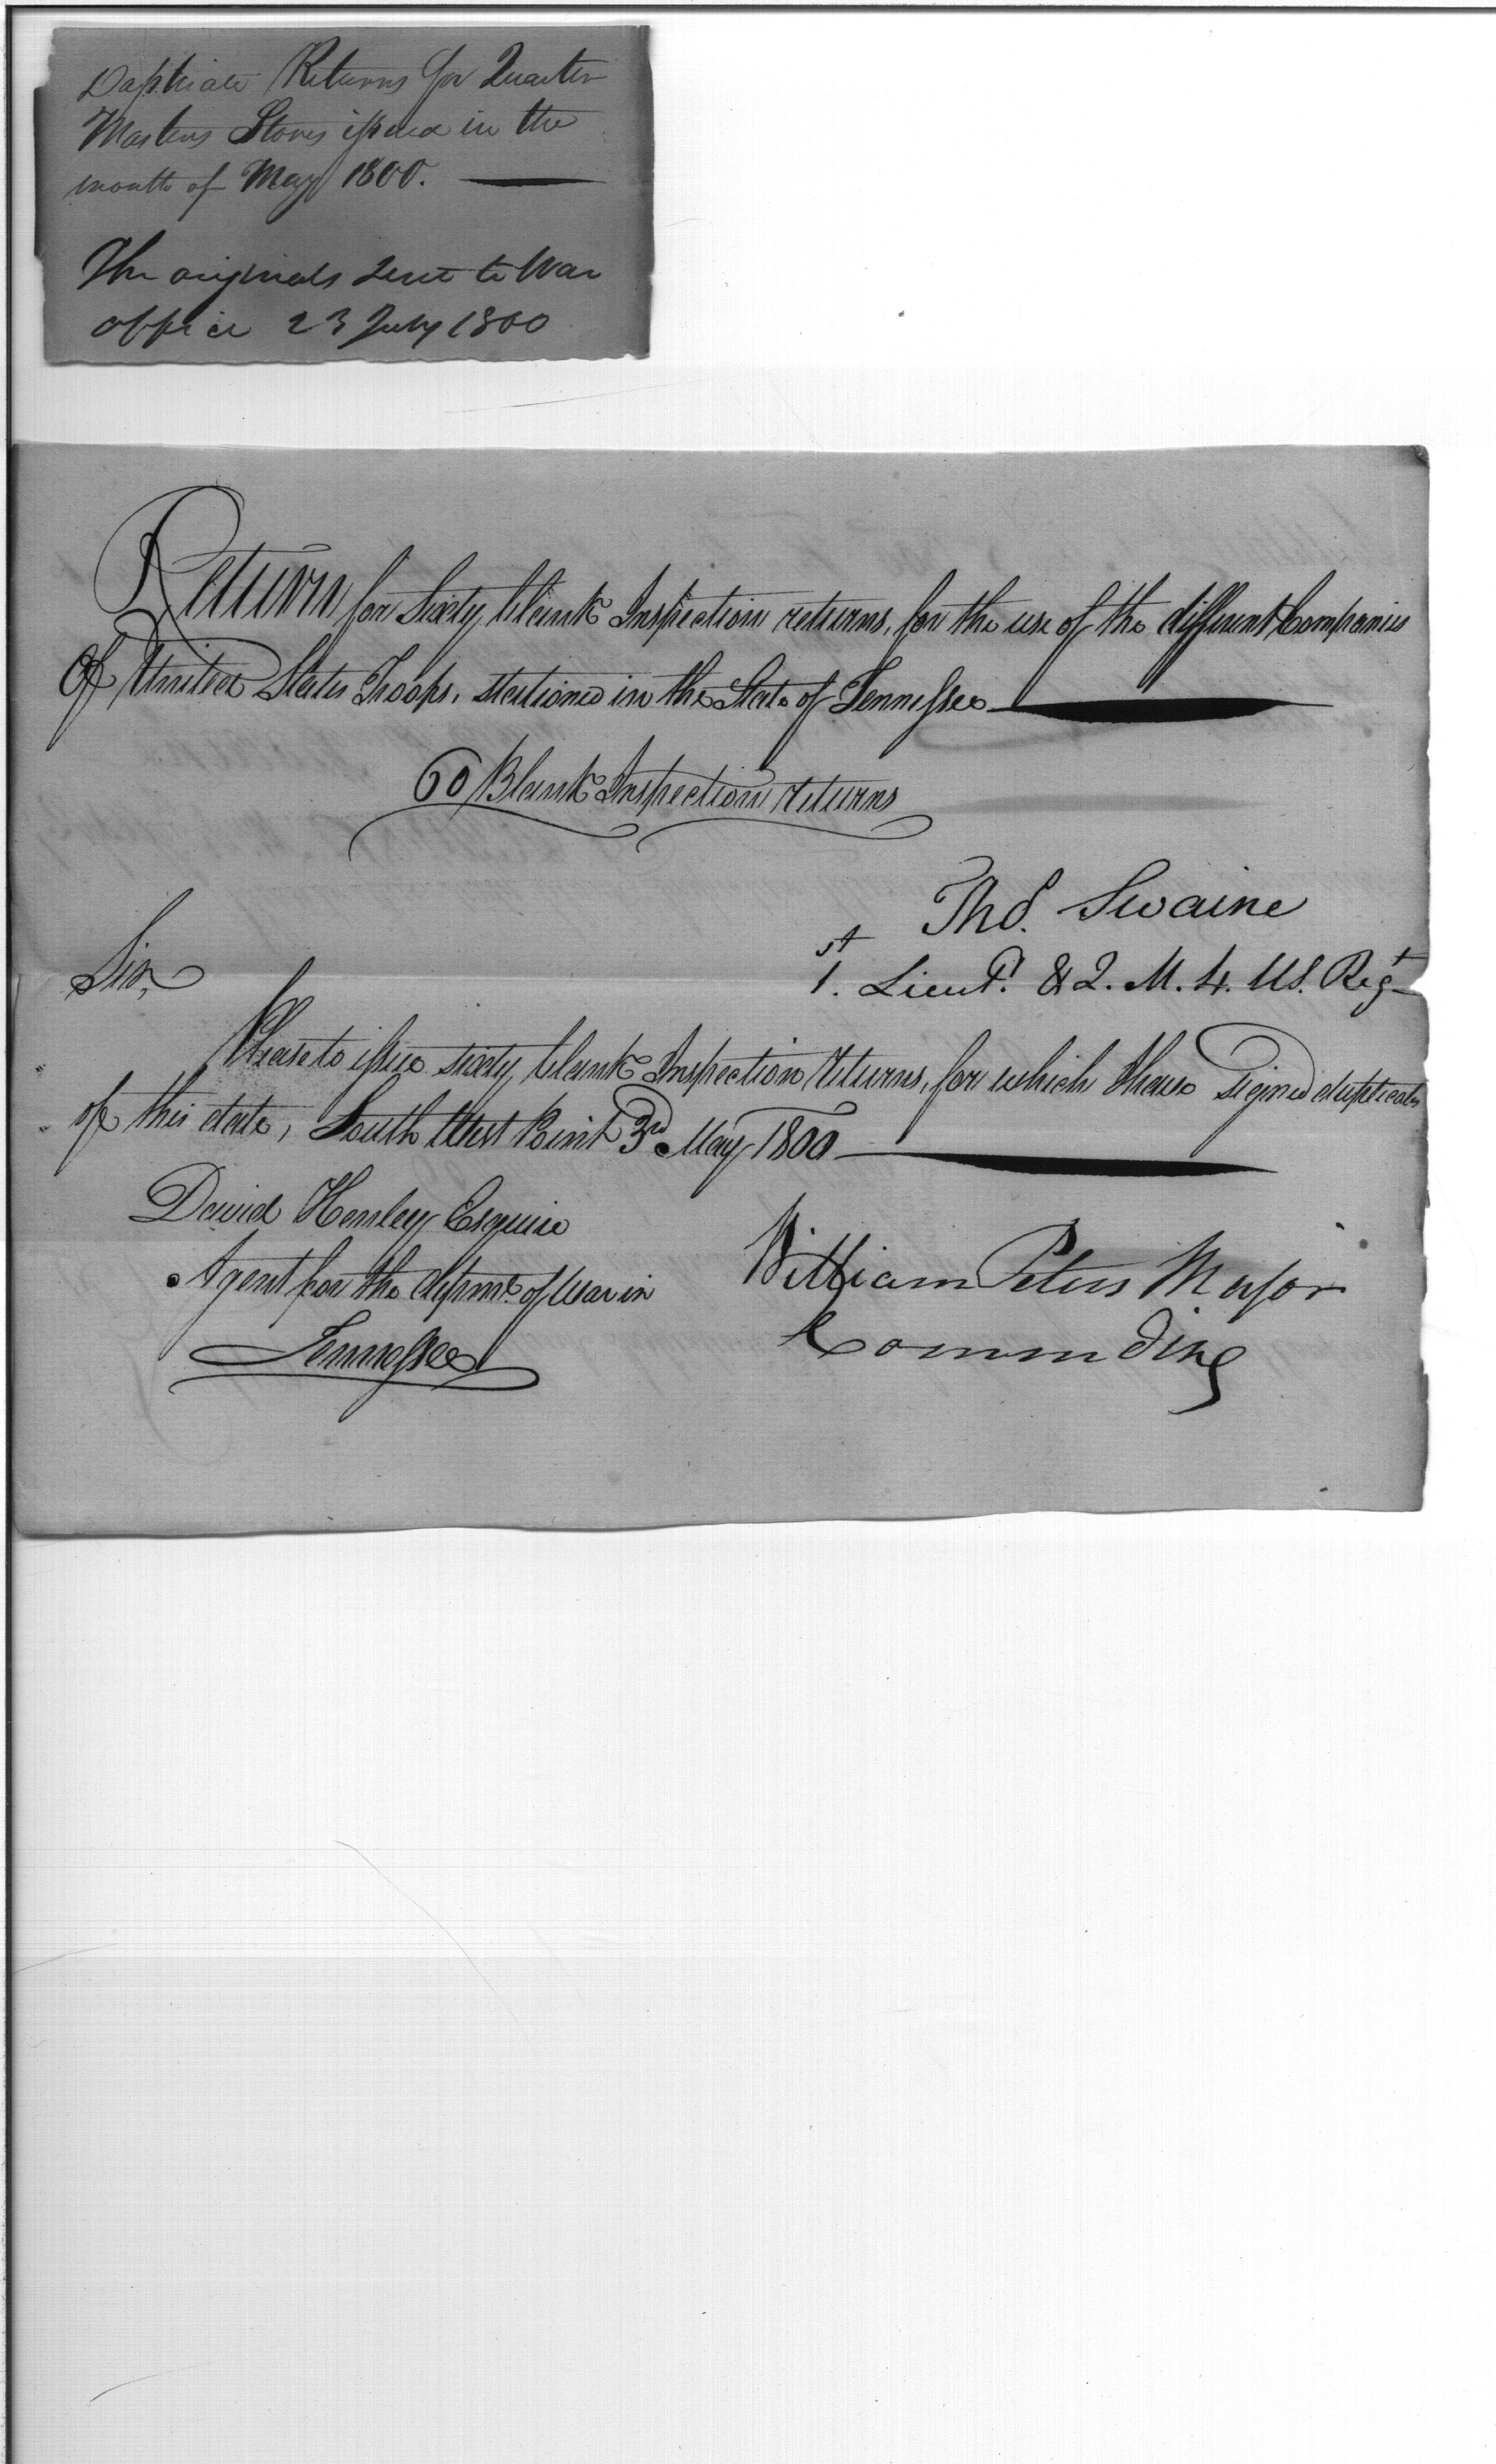 Duplicate Returns for Quarter
Masters Stores issued in the
month of May 1800.
The originals sent to War
office 23 July 1800
Return for Sixty blank Inspection returns, for the use of the different Companies
Of United States Troops, stationed in the State of Tennessee
60 Blank Inspection returns
Thos. Swaine
1st. Lieut. & Q. M. 4. US. Regt
Sir,
Please to issue sixty blank Inspection returns, for which I have signed duplicates
of this date, South West Point 3rd May 1800
David Henley Esquire
Agent for the depmt. of War in
Tennessee
William Peters Major
Comm ding